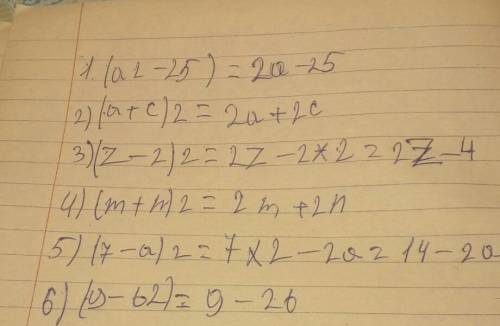 1. (a2-25) = 2a-25
2) (a+c)2 = 2a+2c
3) (z-2)2 = 2z-2*2=2z-4
4) (m+n)2 = 2m+2n
5) (7-a)2 = 7x2-2a=14-2a
6) (9-b2) = 9-2b